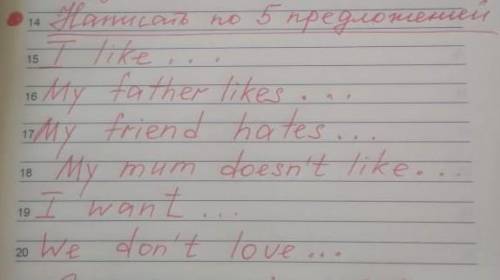 14 Написать по 5 предложений
15 I like ...
16 My father likes ...
17 My friend hates ...
18 My mum doesn't like ...
19 I want ...
20 We don't love ...